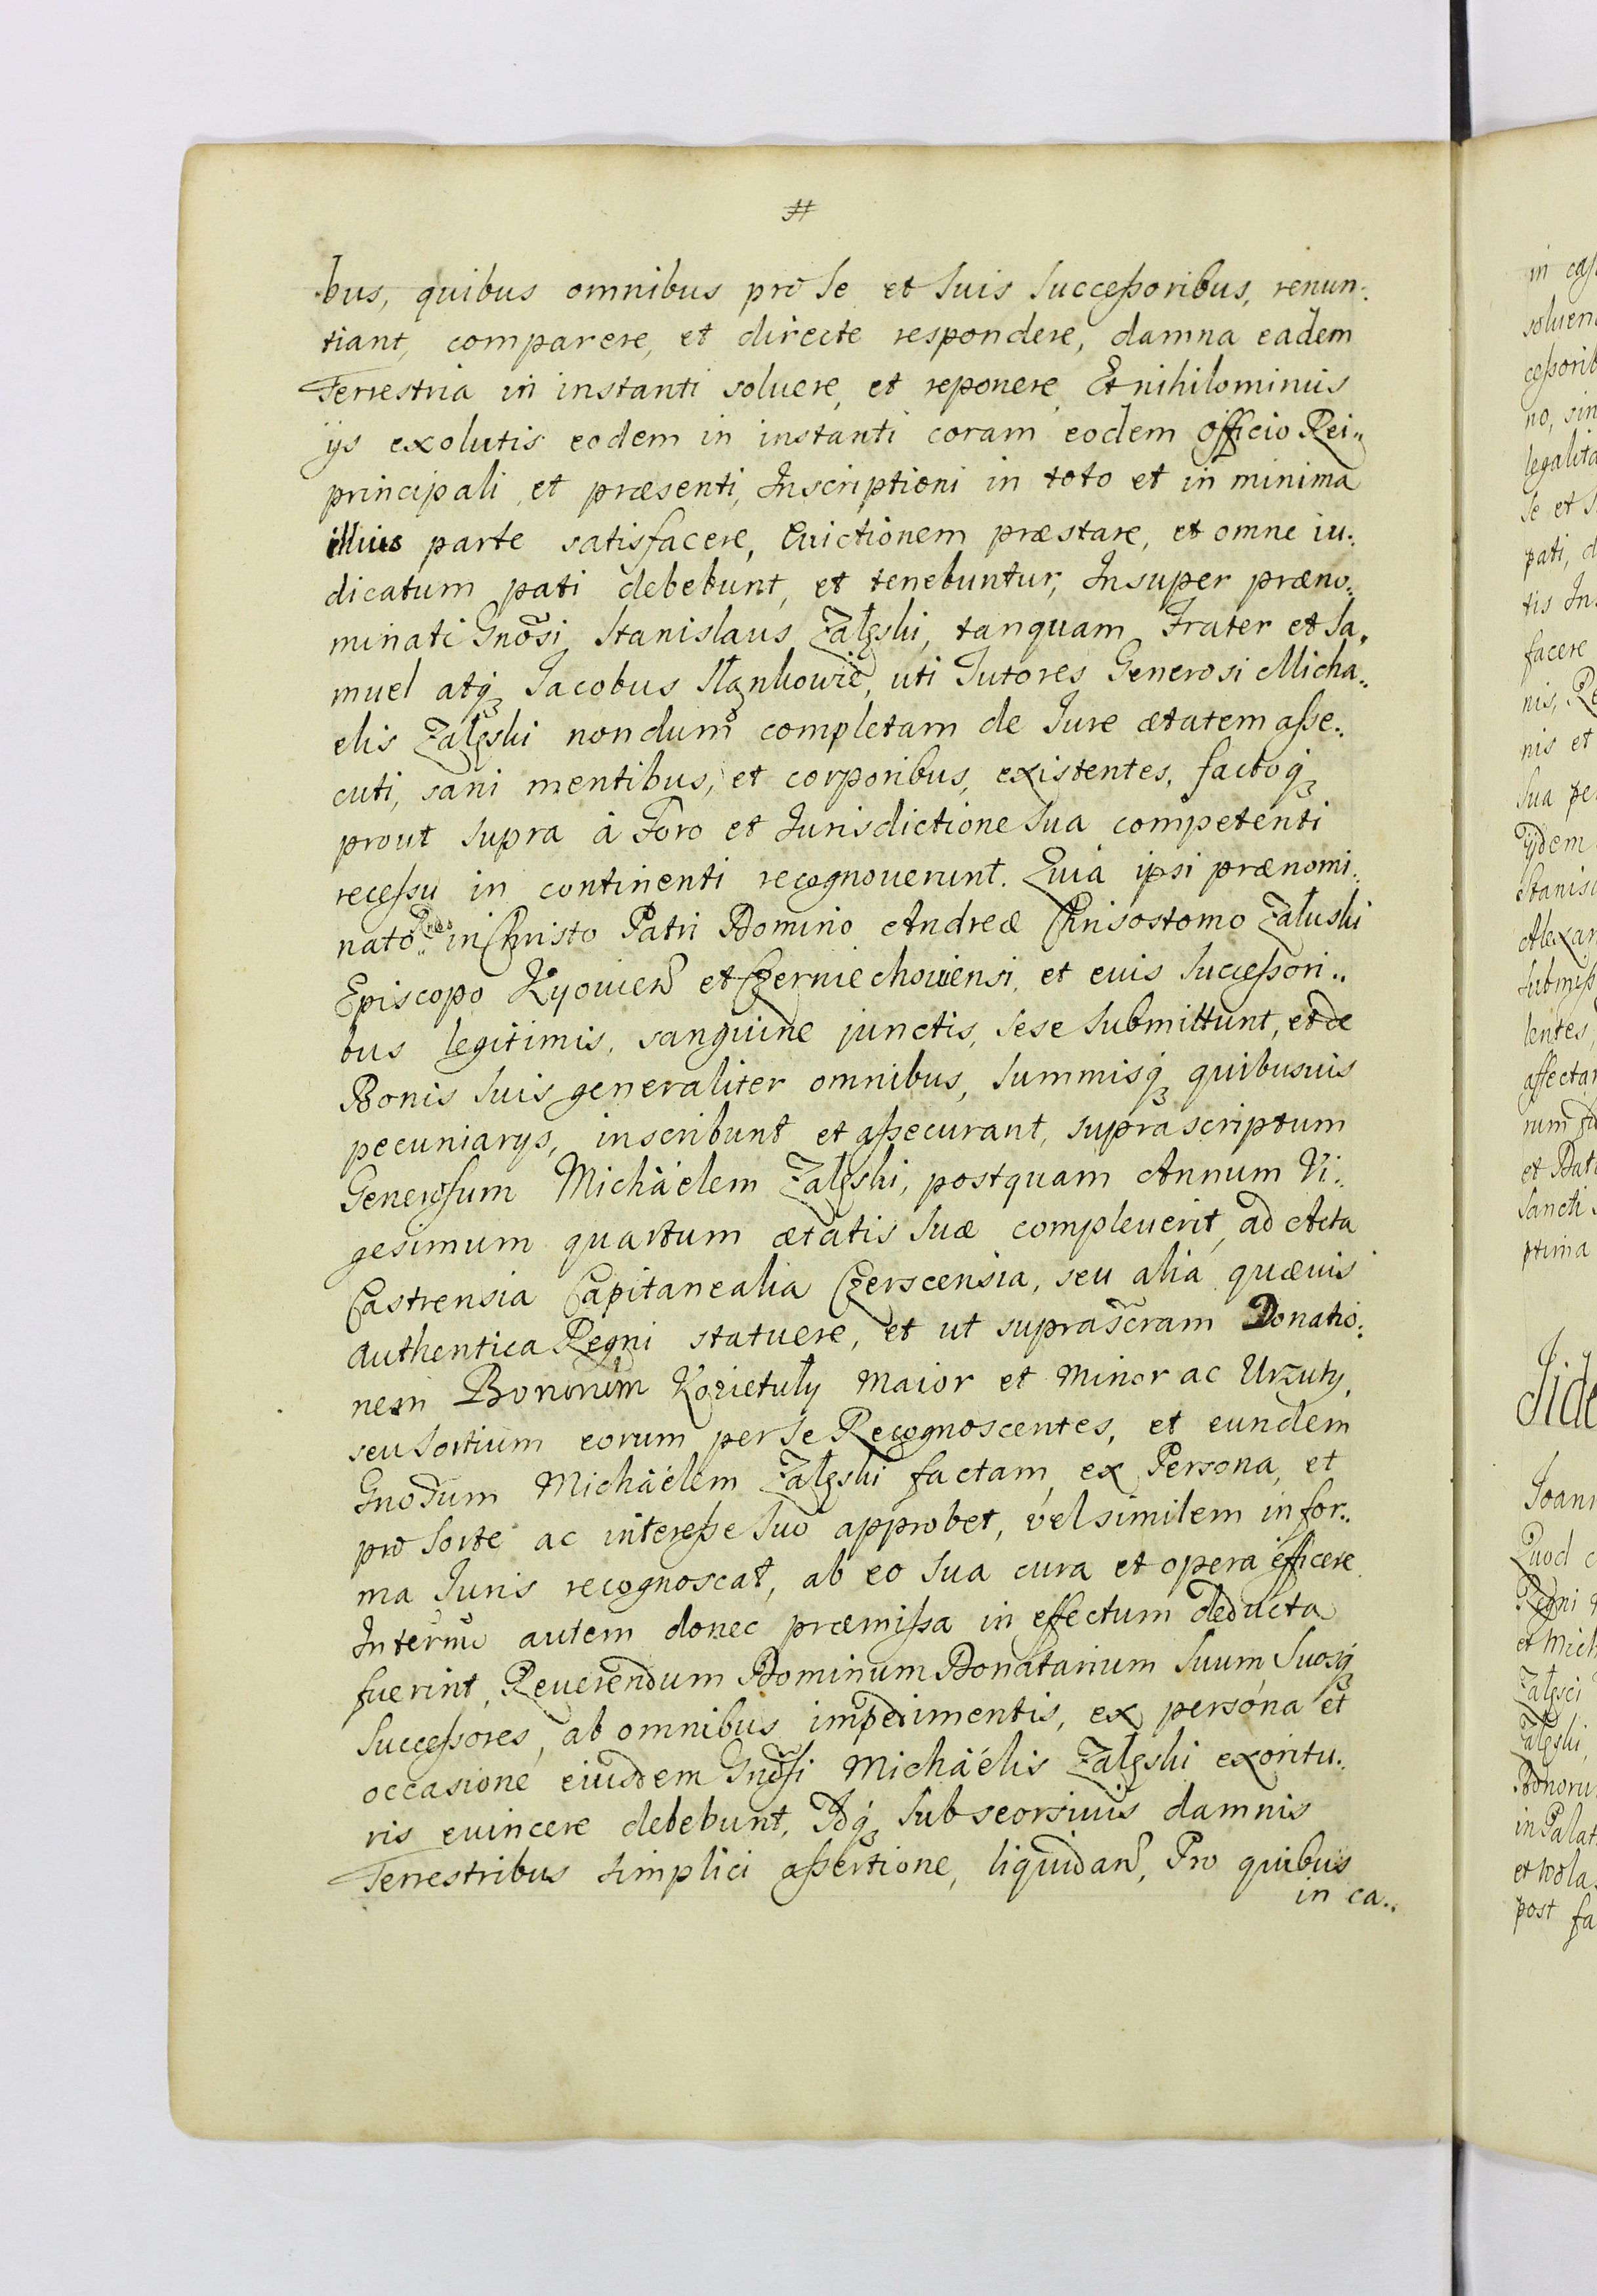 bus, quibus omnibus pro Se et Suis Successoribus, renun:
tiant, comparere, et directe respondere, damna eadem
Terrestria in instanti soluere, et reponere, Et nihilominus
ijs exolutis eodem in instanti coram eodem Officio Rei„
principali, et præsenti, Inscriptioni in toto et in minima
illius parte satisfacere, Euictionem præstare, et omne iu:
dicatum pati debebunt, et tenebuntur, Insuper præno:
minati Gnosi Stanislaus Zalęski, tanquam Frater et Sa„
muel atq Jacobus uti Tutores Generosi Micha„
elis Zalęski nondum completam de Jure ætatem asse:
cuti, sani mentibus, et corporibus, existentes, factoq
prout supra à Foro et Jurisdictione Sua competenti
recessu in continenti recognouerunt. Quia ipsi prænomi:
nato Rndo in Christo Patri Domino Andreæ Chrisostomo Załuski
Episcopo Kyouien et Czerniechouiensi, et euis Successori„
bus legitimis, sanguine junctis, sese Submittunt, et de
Bonis Suis generaliter omnibus, Summisq quibusuis
pecuniarijs, inscribunt et assecurant, suprascriptum
Generosum Michàélem Zalęski, postquam Annum Vi:
gesimum quartum ætatis Suæ compleuerit, ad Acta
Castrensia Capitanealia Czerscensia, seu alia quæuis
Authentica Regni statuere, et ut suprascram Donatio:
nem Bonorum Kozietuły Maior et Minor ac Urzuty,
seu Sortium eorum per Se Recognoscentes, et eundem
Gnosum Michàélem Zalęski factam, ex Persona, et
pro Sorte ac interesse Suo approbet, vel similem in for„
ma Juris recognoscat, ab eo Sua cura et opera efficere
Interim autem donec præmissa in effectum deducta
fuerint, Reuerendum Dominum Donatarium Suum, Suosq
Successores, ab omnibus impedimentis, ex persona et
occasione eiusdem Gnosi Michàélis Zalęski exoritu:
ris euincere debebunt, Idq Sub seorsiuis damnis
Terrestribus Simplici assertione, liquidan, Pro quibus
in ca„
in cas
soluen
cessorib
no, sin
legalita
Se et S
pati, d
tis In
facere
nis, Re
nis et
Sua pe
ijdem
Stanis
Alexan
Submiss
lentes,
affecta
rum
et Dat
Sancti
ptima
Joann
Quod c
Regni
et Mich
Zalęsci
Zalęski,
Bonoru
in Palat
et Wola
post fa